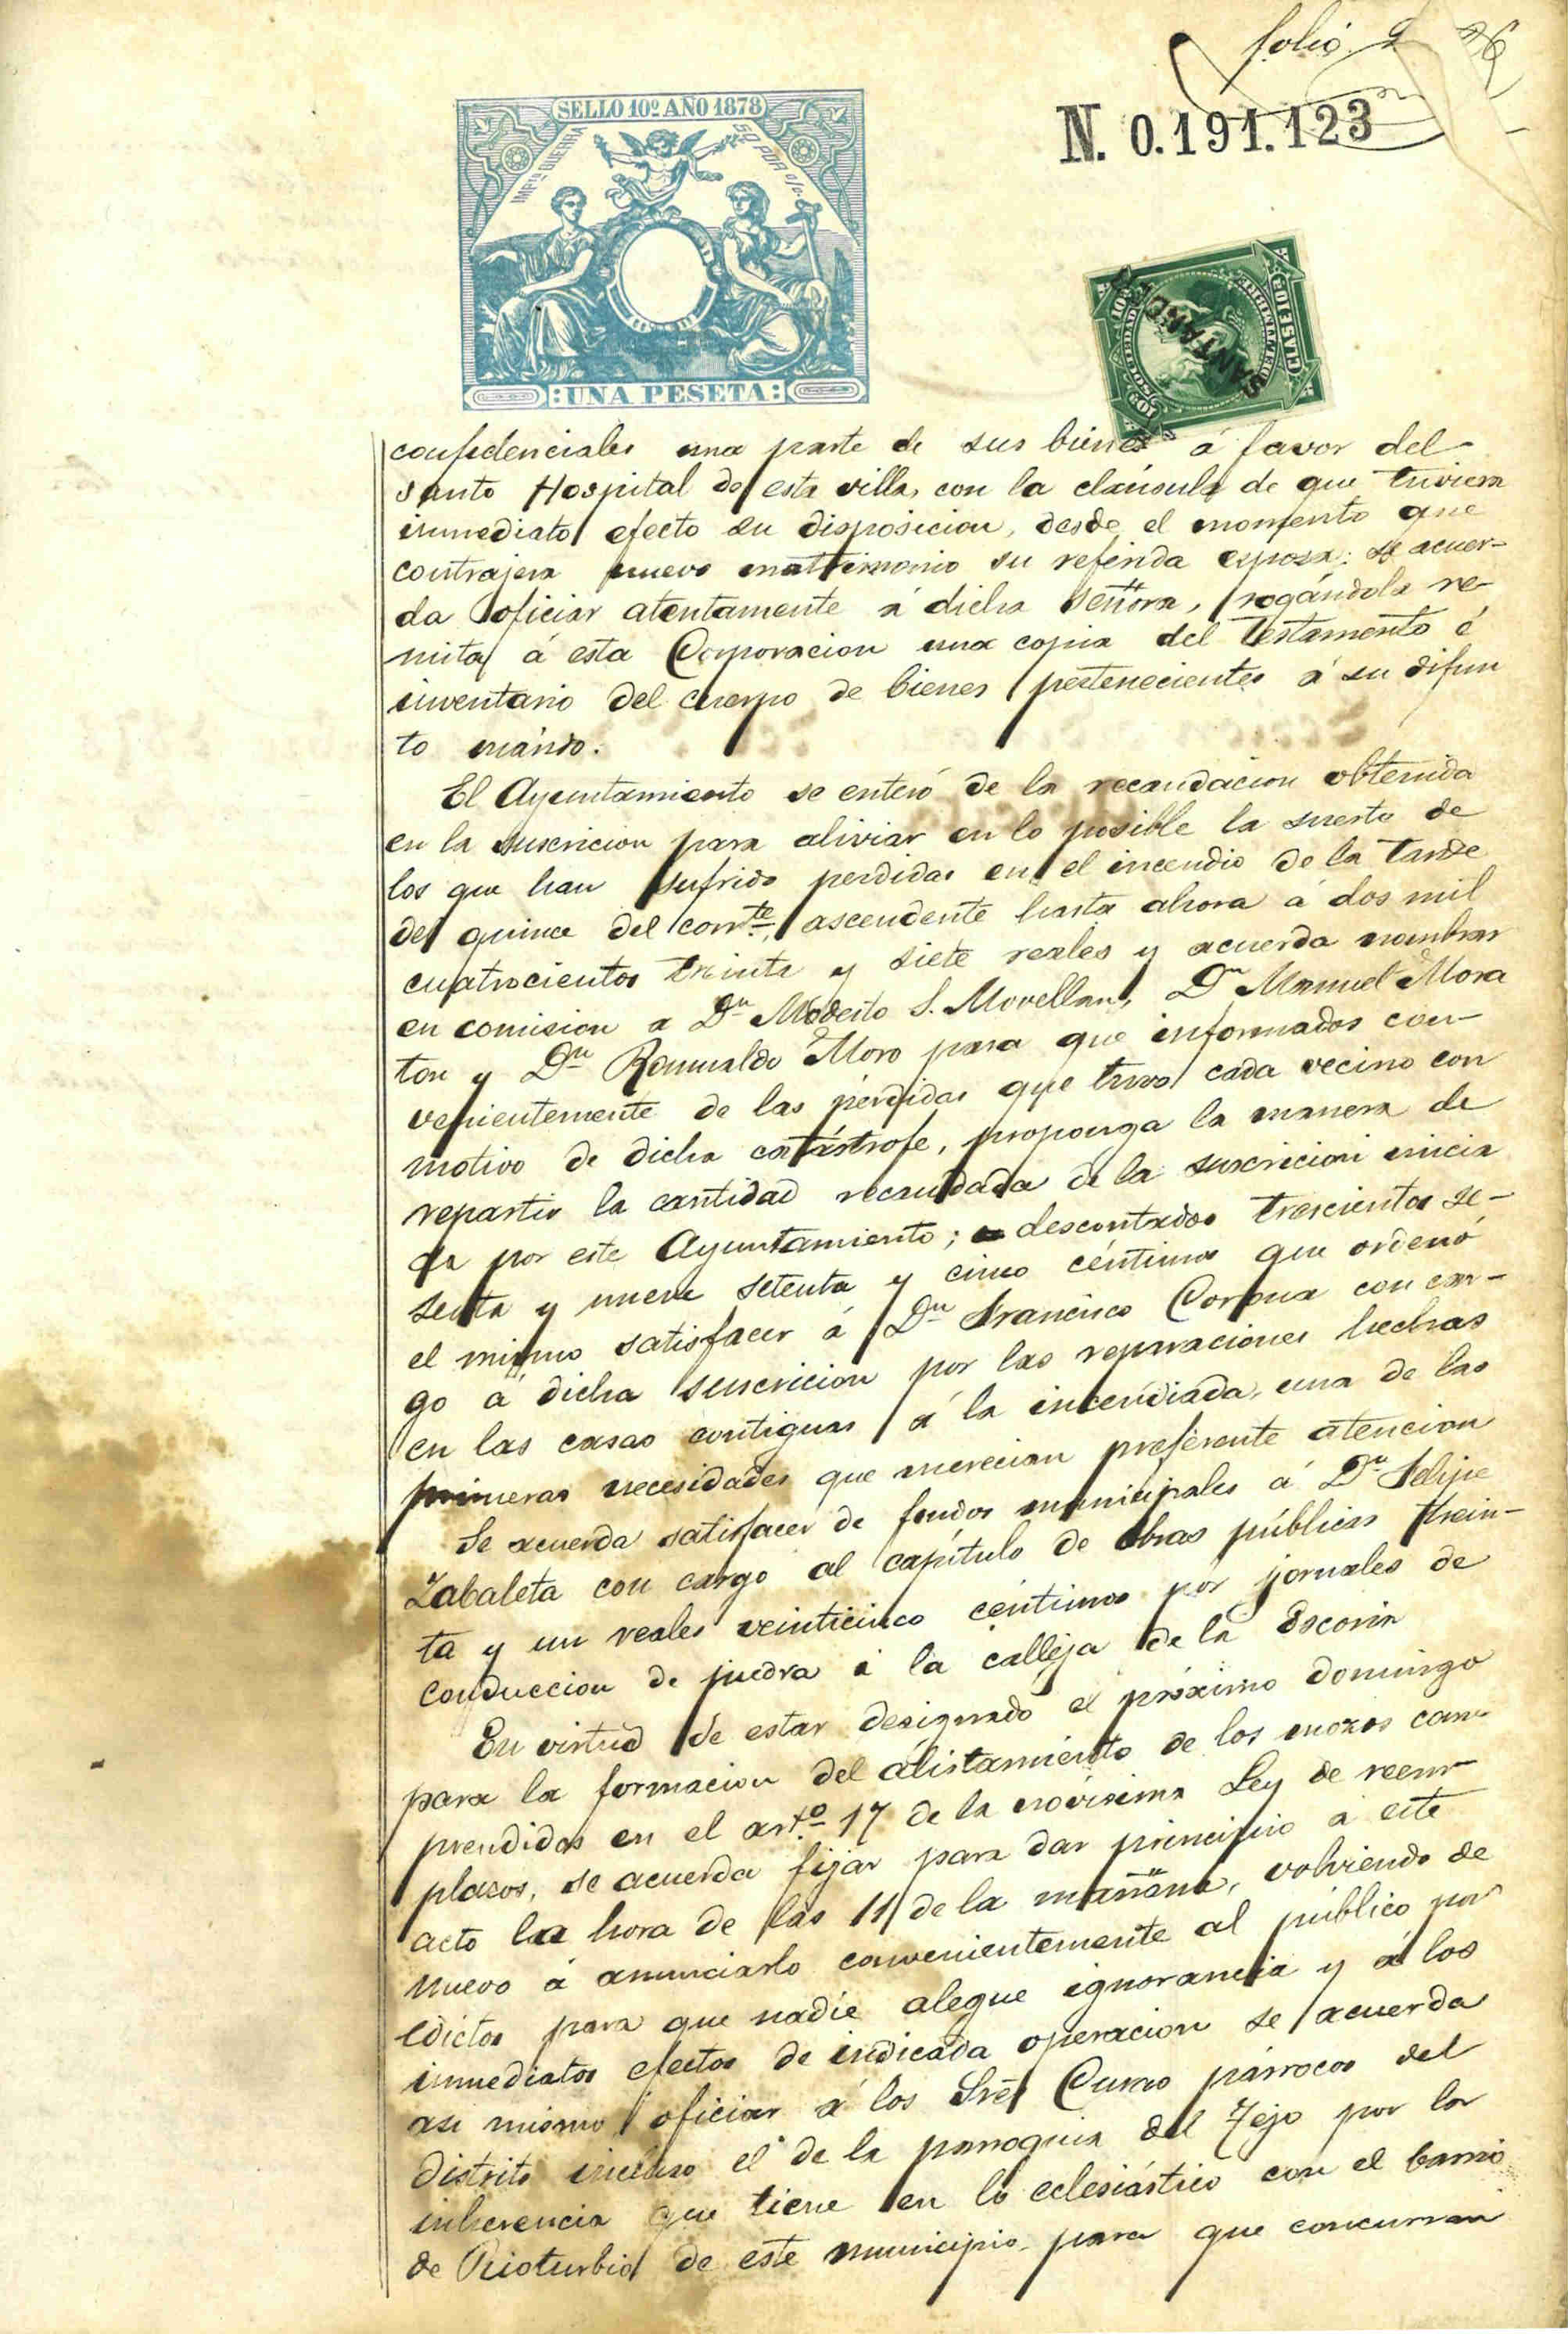 folio 2
26
N. 0.191.123
SELLO 10º AÑO 1878
IMPTO GUERRA
50 POR 0/0
UNA PESETA
SANTANDER
confidenciales una parte de sus bienes á favor del
santo Hospital de esta villa, con la cláusula de que tuviera
inmediato efecto su disposicion, desde el momento que
contrajera nuevo matrimonio su referida esposa: se acuer-
da oficiar atentamente á dicha señora, rogándola re-
mita á esta Corporacion una copia del testamento é
inventario del cuerpo de bienes pertenecientes á su difun
to marido.
El Ayuntamiento se enteró de la recaudacion obtenida
en la suscricion para aliviar en lo posible la suerte de
los que han sufrido perdidas en el incendio de la tarde
del quince del corrte, ascendente hasta ahora á dos mil
cuatrocientos treinta y siete reales y acuerda nombrar
en comision a Dn Modesto S. Movellan, Dn Manuel Mora
ton y Dn Romualdo Moro para que informados con-
venientemente de las pérdidas que tuvo cada vecino con
motivo de dicha catástrofe, proponga la manera de
repartir la cantidad recaudada de la suscricion inicia
da por este Ayuntamiento; descontados trescientos se-
senta y nueve setenta y cinco céntimos que ordenó
el mismo satisfacer á Dn Francisco Corona con car-
go á dicha suscricion por las reparaciones hechas
en las casas contiguas á la incendiada, una de las
primeras necesidades que merecian preferente atencion
Se acuerda satisfacer de fondos municipales á Dn Felipe
Zabaleta con cargo al capítulo de obras públicas trein-
ta y un reales veinticinco céntimos por jornales de
conduccion de piedra á la calleja de la Escoria
En virtud de estar designado el próximo domingo
para la formacion del alistamiento de los mozos com-
prendidos en el arto 17 de la novísima Ley de reem-
plazos, se acuerda fijar para dar principio á este
acto la hora de las 11 de la mañana, volviendo de
nuevo á anunciarlo convenientemente al público por
edictos para que nadie alegue ignorancia y á los
inmediatos efectos de indicada operacion se acuerda
asi mismo oficiar á los Sres Curas párrocos del
distrito incluso el de la parroquia del Tejo por la
inherencia que tiene en lo eclesiástico con el barrio
de Rioturbio de este municipio, para que concurran